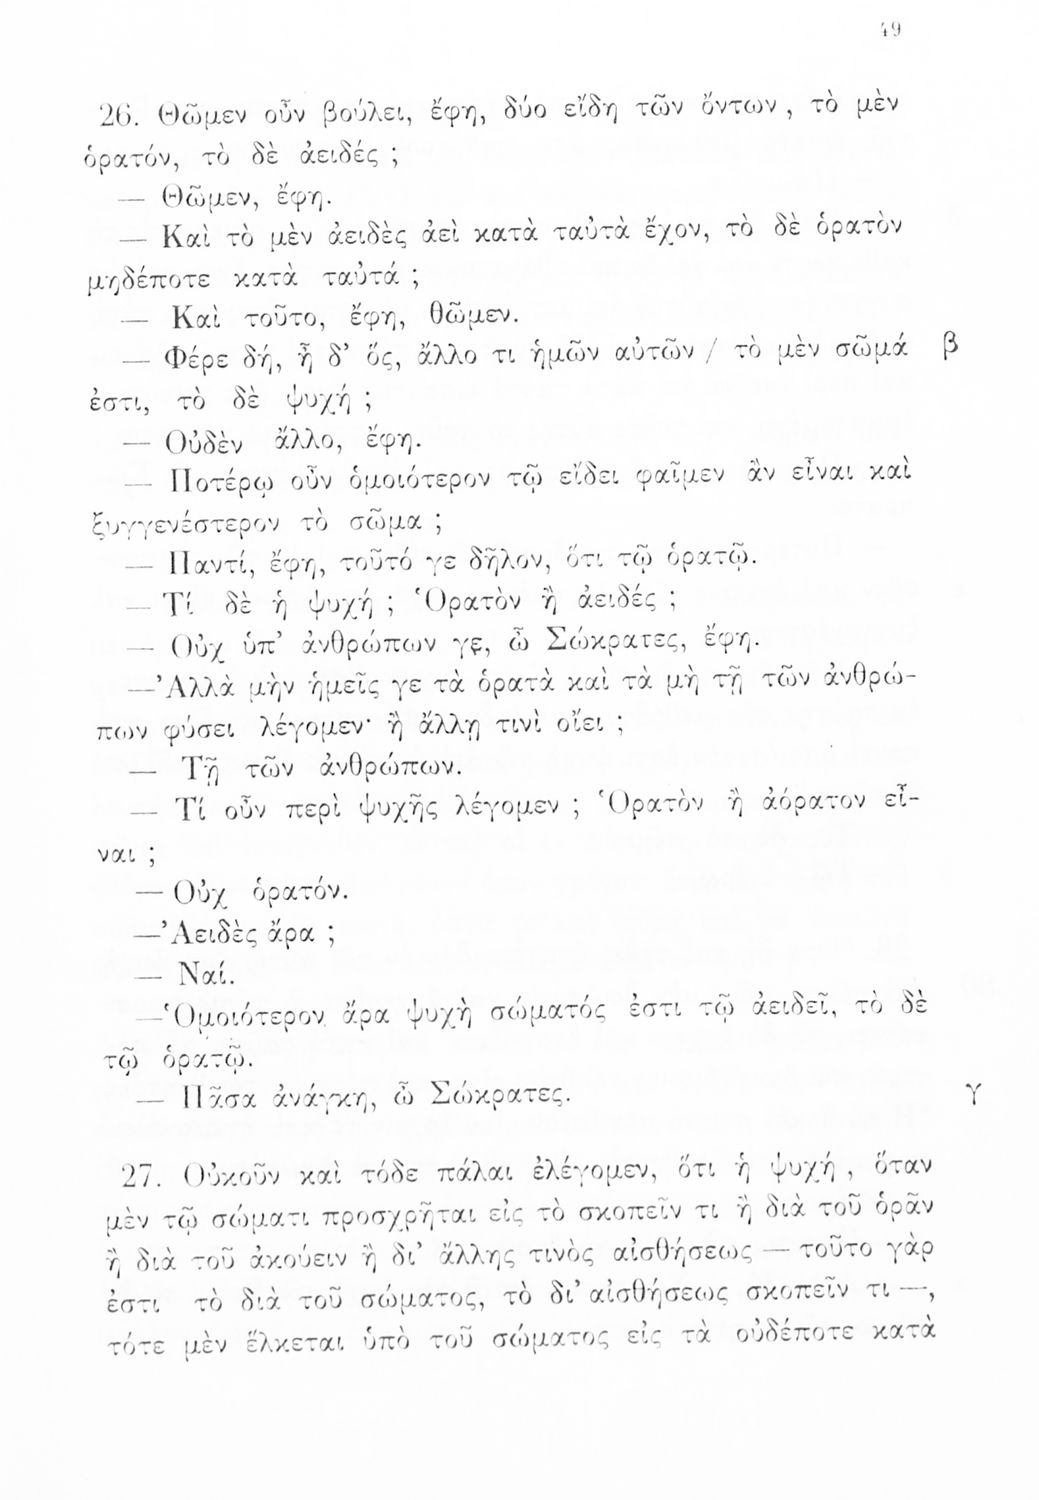 49
26. Θῶμεν οὖν βούλει, ἔφη, δύο εἴδη τῶν ὄντων, τὸ μὲν
ὁρατόν, τὸ δὲ ἀειδές ;
— Θῶμεν, ἔφη.
— Καὶ τὸ μὲν ἀειδὲς ἀεὶ κατὰ ταὐτὰ ἔχον, τὸ δὲ ὁρατὸν
μηδέποτε κατὰ ταὐτά ;
— Καὶ τοῦτο, ἔφη, θῶμεν.
— Φέρε δή, ἦ δ’ ὅς, ἄλλο τι ἡμῶν αὐτῶν / τὸ μὲν σῶμά β
ἐστι, τὸ δὲ ψυχή ;
— Οὐδὲν ἄλλο, ἔφη.
— Ποτέρῳ οὖν ὁμοιότερον τῷ εἴδει φαῖμεν ἂν εἶναι καὶ
ξυγγενέστερον τὸ σῶμα ;
— Παντί, ἔφη, τοῦτό γε δῆλον, ὅτι τῷ ὁρατῷ.
— Τί δὲ ἡ ψυχή ; Ὁρατὸν ἢ ἀειδές ;
— Οὐχ ὑπ’ ἀνθρώπων γε, ὦ Σώκρατες, ἔφη.
— Ἀλλὰ μὴν ἡμεῖς γε τὰ ὁρατὰ καὶ τὰ μὴ τῇ τῶν ἀνθρώ-
πων φύσει λέγομεν· ἢ ἄλλῃ τινὶ οἴει ;
— Τῇ τῶν ἀνθρώπων.
— Τί οὖν περὶ ψυχῆς λέγομεν ; Ὁρατὸν ἢ ἀόρατον εἶ-
ναι ;
— Οὐχ ὁρατόν.
— Ἀειδὲς ἄρα ;
— Ναί.
— Ὁμοιότερον ἄρα ψυχὴ σώματός ἐστι τῷ ἀειδεῖ, τὸ δὲ
τῷ ὁρατῷ.
— Πᾶσα ἀνάγκη, ὦ Σώκρατες. γ
27. Οὐκοῦν καὶ τόδε πάλαι ἐλέγομεν, ὅτι ἡ ψυχή, ὅταν
μὲν τῷ σώματι προσχρῆται εἰς τὸ σκοπεῖν τι ἢ διὰ τοῦ ὁρᾶν
ἢ διὰ τοῦ ἀκούειν ἢ δι’ ἄλλης τινὸς αἰσθήσεως — τοῦτο γάρ
ἐστι τὸ διὰ τοῦ σώματος, τὸ δι’ αἰσθήσεως σκοπεῖν τι —,
τότε μὲν ἕλκεται ὑπὸ τοῦ σώματος εἰς τὰ οὐδέποτε κατὰ